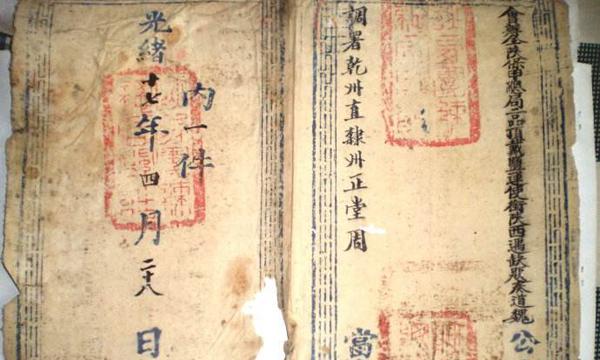 會辦全陝保甲總局二品頂戴鹽運使銜陝西遇缺奏道魏
公
調署乾州直隸州正堂周
當
內一件
光緒十七年四月二十八日